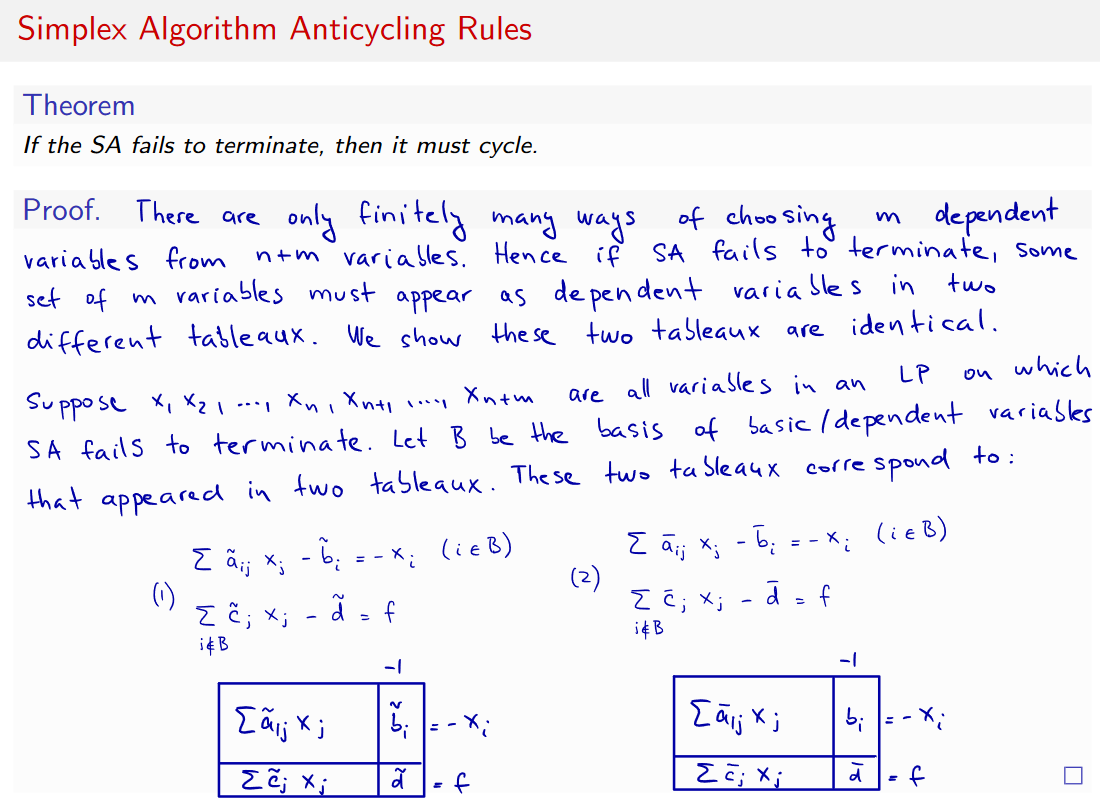 Simplex Algorithm Anticycling Rules
Theorem
If the SA fails to terminate, then it must cycle.
Proof. There are only finitely many ways of choosing m dependent
variables from n+m variables. Hence if SA fails to terminate, some
set of m variables must appear as dependent variables in two
different tableaux. We show these two tableaux are identical.
Suppose x₁ x₂, ..., xₙ, xₙ₊₁ ..., xₙ₊ₘ are all variables in an LP on which
SA fails to terminate. Let B be the basis of basic/dependent variables
that appeared in two tableaux. These two tableaux correspond to:
(1) Σ ãᵢⱼ xⱼ - b̃ᵢ = - xᵢ (i ∈ B)
Σ c̃ⱼ xⱼ - d̃ = f
i∉B
(2) Σ āᵢⱼ xⱼ - b̄ᵢ = - xᵢ (i ∈ B)
Σ c̄ⱼ xⱼ - d̄ = f
i∉B
-1
Σ ãᵢⱼ xⱼ b̃ᵢ = - xᵢ
Σ c̃ⱼ xⱼ d̃ = f
-1
Σ āᵢⱼ xⱼ bᵢ = - xᵢ
Σ c̄ⱼ xⱼ d̄ = f
□